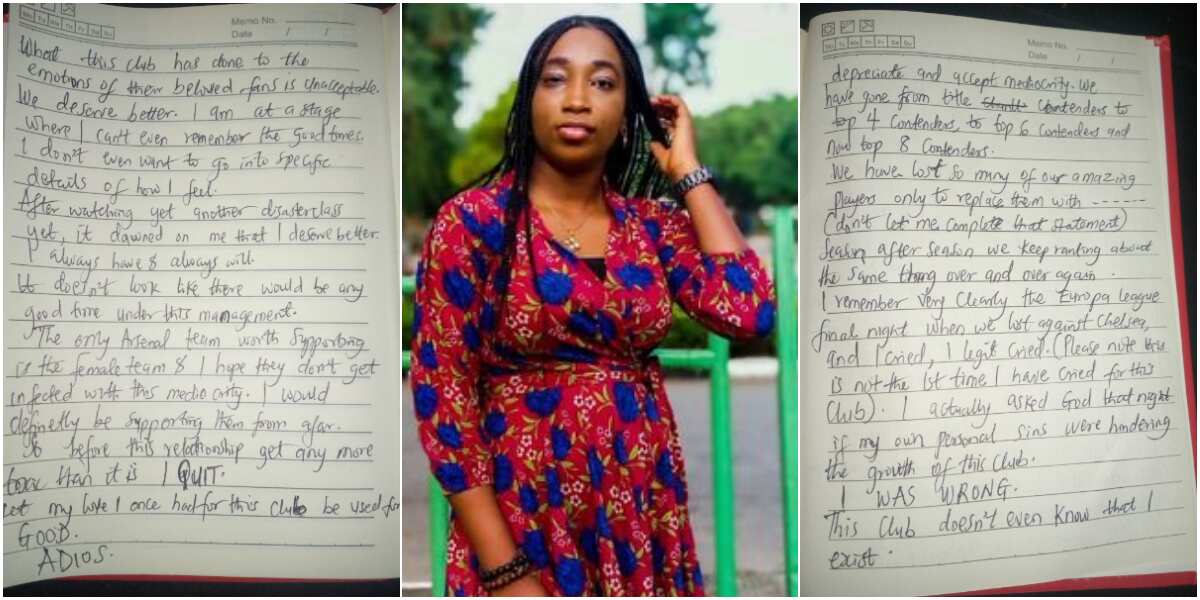 Memo No.
Date / /
Mo Tu We Th Fr Sa Su
What this club has done to the
emotions of their beloved fans is Unacceptable.
We deserve better. I am at a stage
where I can't even remember the good times.
I don't even want to go into specific
details of how I feel.
After watching yet another disasterclass
yet, it dawned on me that I deserve better.
I always have & always will.
It doesn't look like there would be any
good time under this management.
The only Arsenal team worth Supporting
is the female team & I hope they don't get
infected with this mediocrity. I would
definetly be supporting them from afar.
So before this relationship get any more
toxic than it is I QUIT.
Let my love I once had for this club be used for
GOOD.
ADIOS.
Memo No.
Date / /
Mo Tu We Th Fr Sa Su
depreciate and accept mediocrity. We
have gone from title Contenders to
top 4 Contenders, to top 6 contenders and
now top 8 Contenders.
We have lost so many of our amazing
players only to replace them with ------
(don't let me complete that statement)
Season after season we keep ranting about
the same thing over and over again.
I remember very clearly the Europa league
final night when we lost against Chelsea,
and I cried, I legit cried. (Please note this
is not the 1st time I have cried for this
Club). I actually asked God that night
if my own personal sins were hindering
the growth of this Club.
I WAS WRONG.
This Club doesn't even know that I
exist.